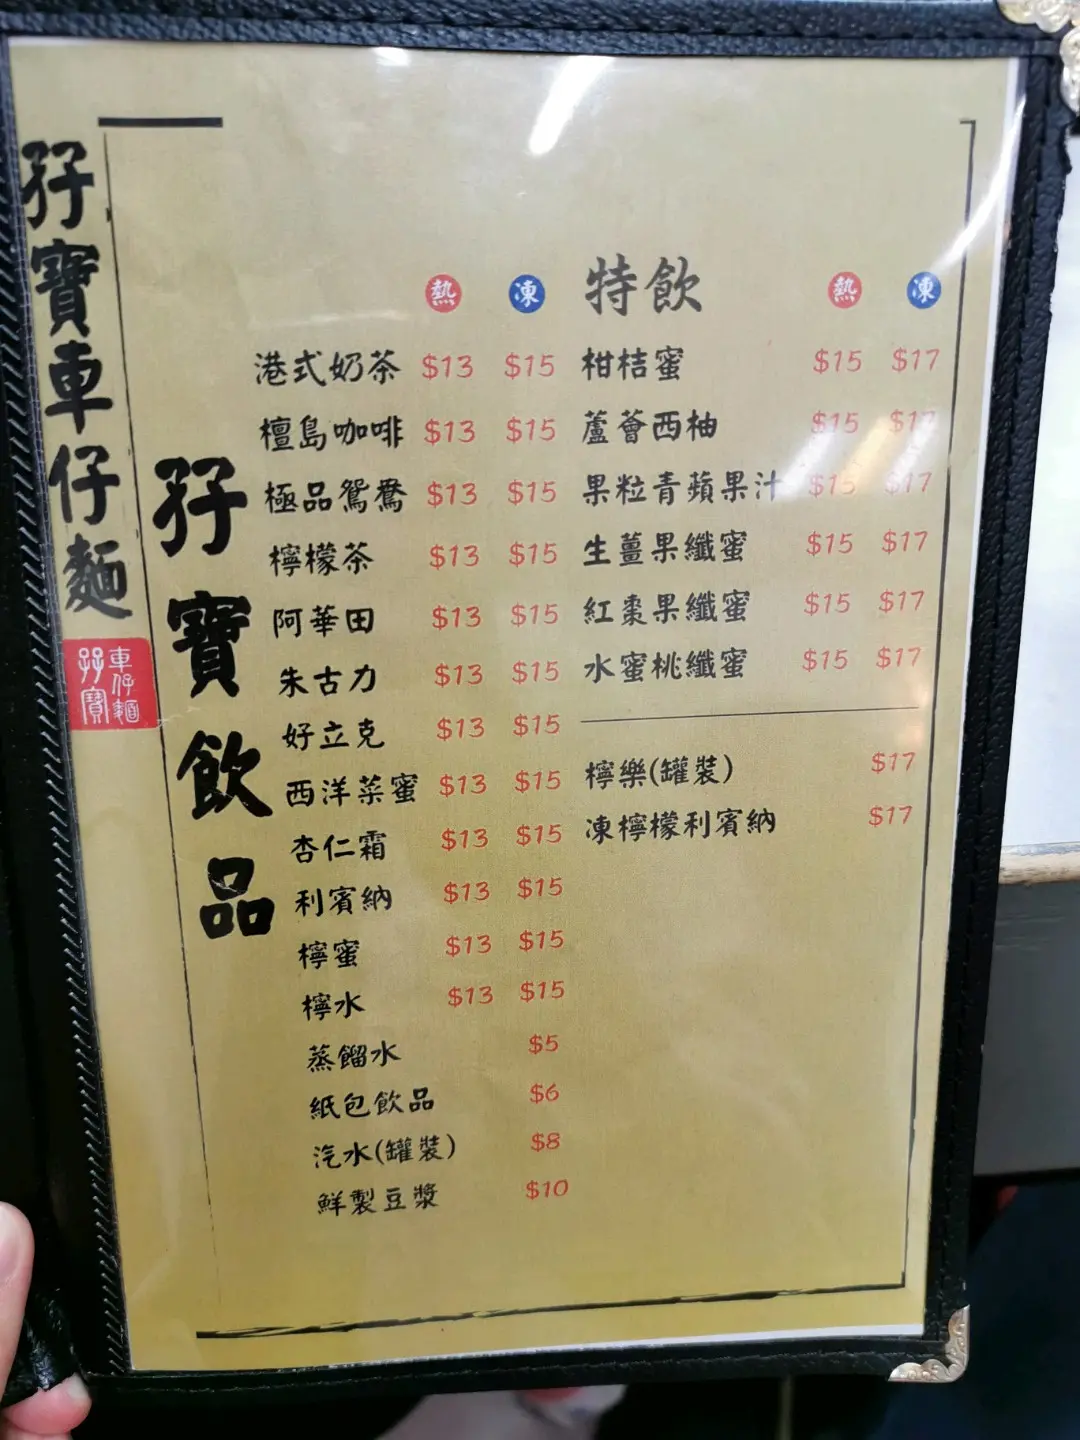 孖寶車仔麵
車仔麵
孖寶
孖寶飲品
熱 凍
港式奶茶 $13 $15
檀島咖啡 $13 $15
極品鴛鴦 $13 $15
檸檬茶 $13 $15
阿華田 $13 $15
朱古力 $13 $15
好立克 $13 $15
西洋菜蜜 $13 $15
杏仁霜 $13 $15
利賓納 $13 $15
檸蜜 $13 $15
檸水 $13 $15
蒸餾水 $5
紙包飲品 $6
汽水(罐裝) $8
鮮製豆漿 $10
特飲 熱 凍
柑桔蜜 $15 $17
蘆薈西柚 $15 $17
果粒青蘋果汁 $15 $17
生薑果纖蜜 $15 $17
紅棗果纖蜜 $15 $17
水蜜桃纖蜜 $15 $17
檸樂(罐裝) $17
凍檸檬利賓納 $17